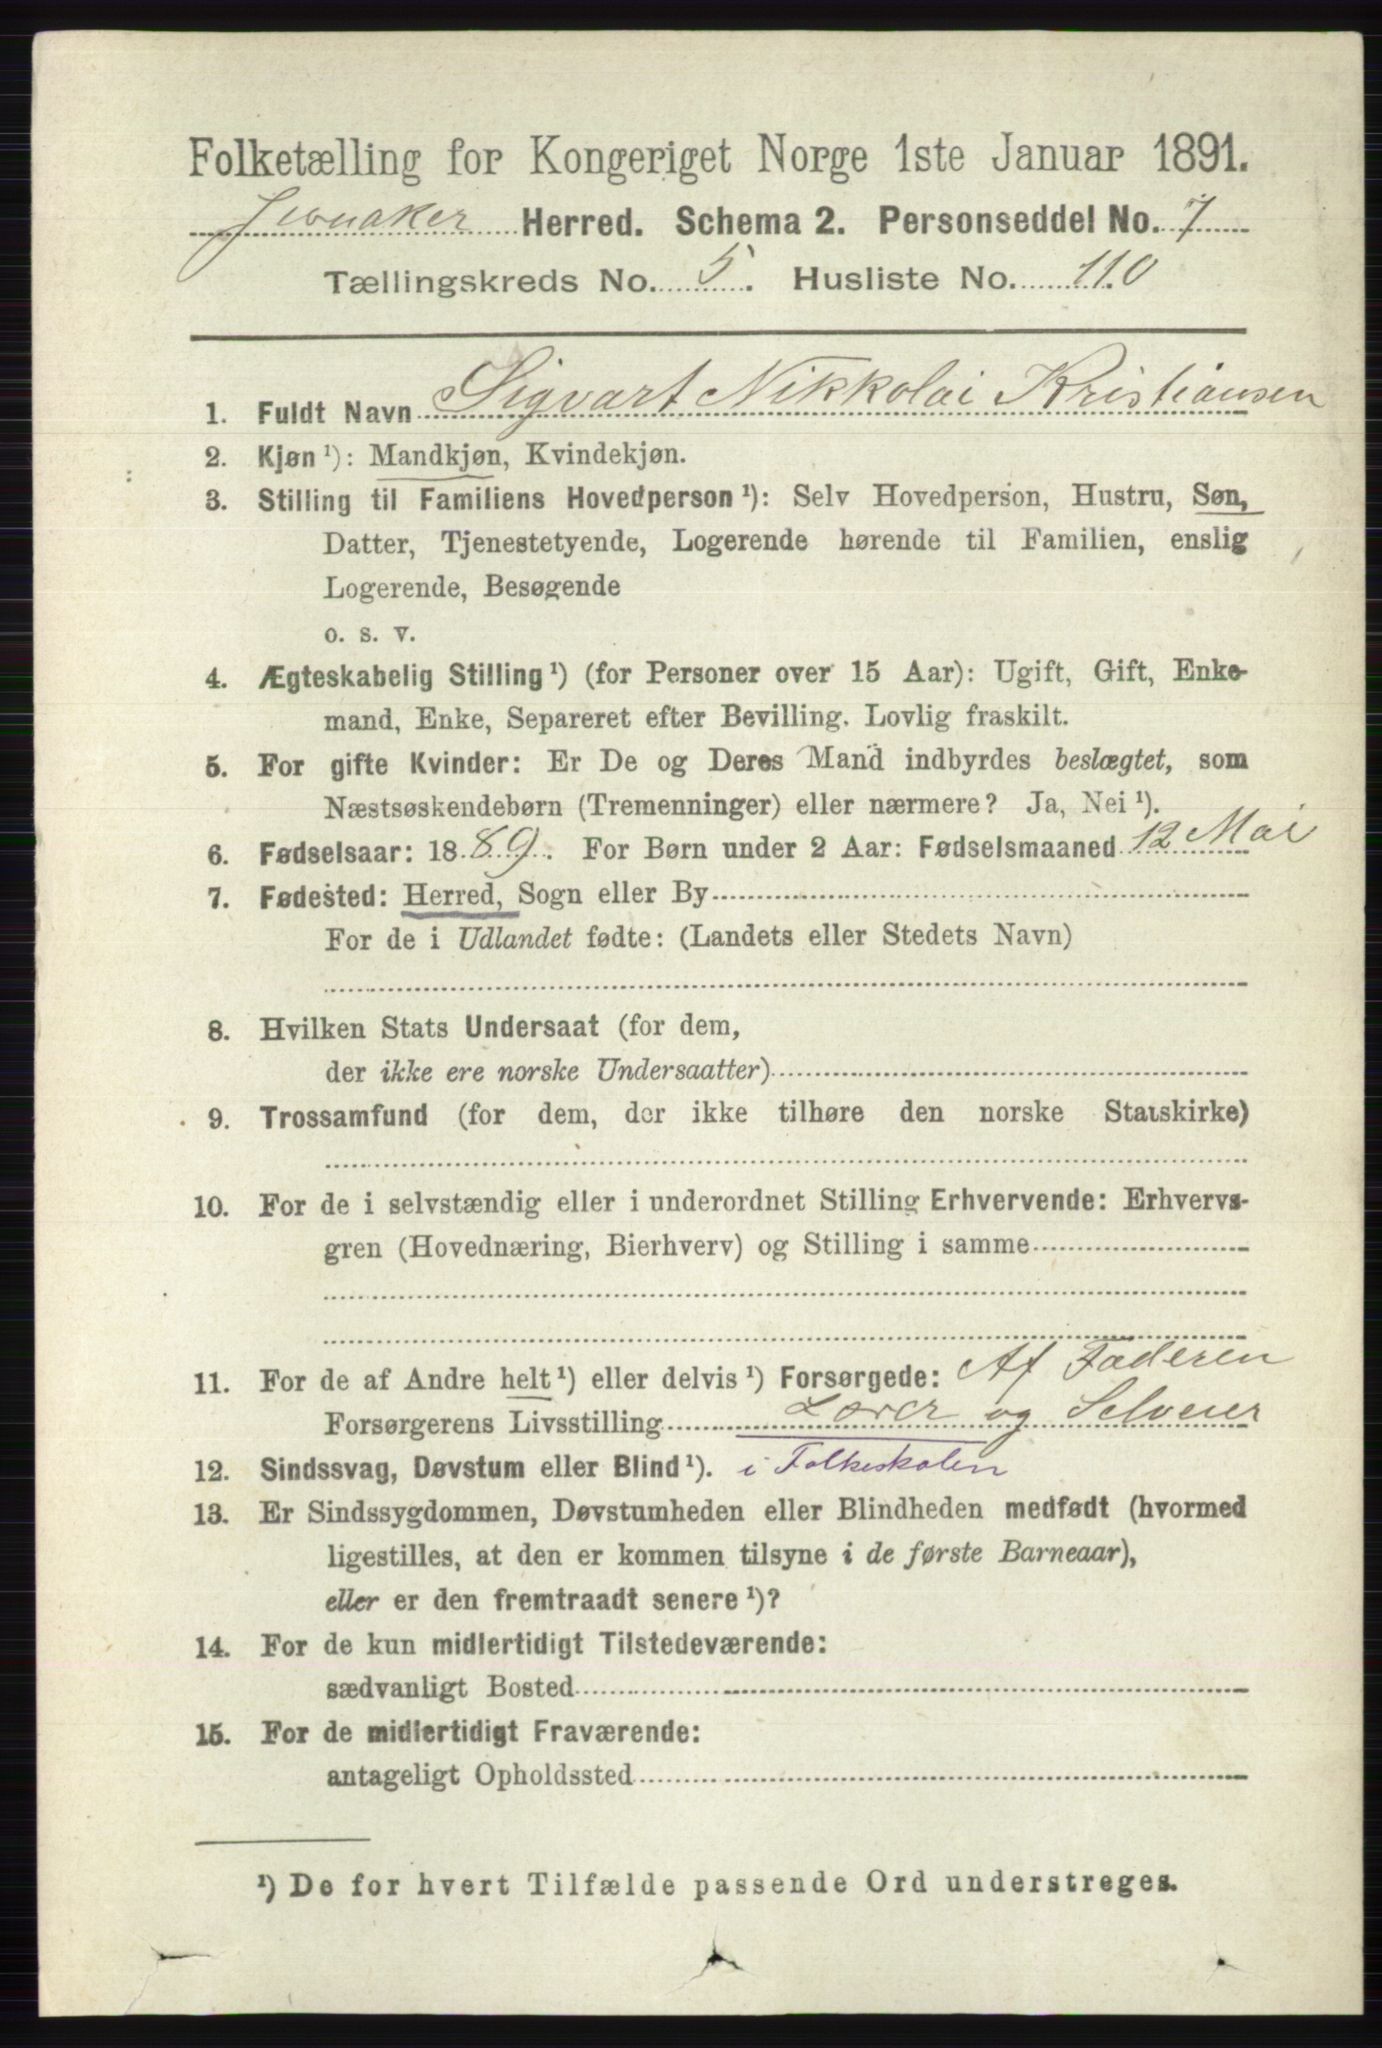 Folketælling for Kongeriget Norge 1ste Januar 1891.
Jevnaker Herred. Schema 2. Personseddel No. 7
Tællingskreds No. 5. Husliste No. 110
1. Fuldt Navn Sigvart Nikkolai Kristiansen
2. Kjøn ¹): Mandkjøn, Kvindekjøn.
3. Stilling til Familiens Hovedperson ¹): Selv Hovedperson, Hustru, Søn,
Datter, Tjenestetyende, Logerende hørende til Familien, enslig
Logerende, Besøgende
o. s. v.
4. Ægteskabelig Stilling ¹) (for Personer over 15 Aar): Ugift, Gift, Enke-
mand, Enke, Separeret efter Bevilling. Lovlig fraskilt.
5. For gifte Kvinder: Er De og Deres Mand indbyrdes beslægtet, som
Næstsøskendebørn (Tremenninger) eller nærmere? Ja, Nei ¹).
6. Fødselsaar: 1889. For Børn under 2 Aar: Fødselsmaaned 12 Mai
7. Fødested: Herred, Sogn eller By
For de i Udlandet fødte: (Landets eller Stedets Navn)
8. Hvilken Stats Undersaat (for dem,
der ikke ere norske Undersaatter)
9. Trossamfund (for dem, der ikke tilhøre den norske Statskirke)
10. For de i selvstændig eller i underordnet Stilling Erhvervende: Erhvervs-
gren (Hovednæring, Bierhverv) og Stilling i samme
11. For de af Andre helt ¹) eller delvis ¹) Forsørgede: Af Faderen
Forsørgerens Livsstilling Lærer og Selveier
12. Sindssvag, Døvstum eller Blind ¹). i Folkeskolen
13. Er Sindssygdommen, Døvstumheden eller Blindheden medfødt (hvormed
ligestilles, at den er kommen tilsyne i de første Barneaar),
eller er den fremtraadt senere ¹)?
14. For de kun midlertidigt Tilstedeværende:
sædvanligt Bosted
15. For de midlertidigt Fraværende:
antageligt Opholdssted
¹) De for hvert Tilfælde passende Ord understreges.